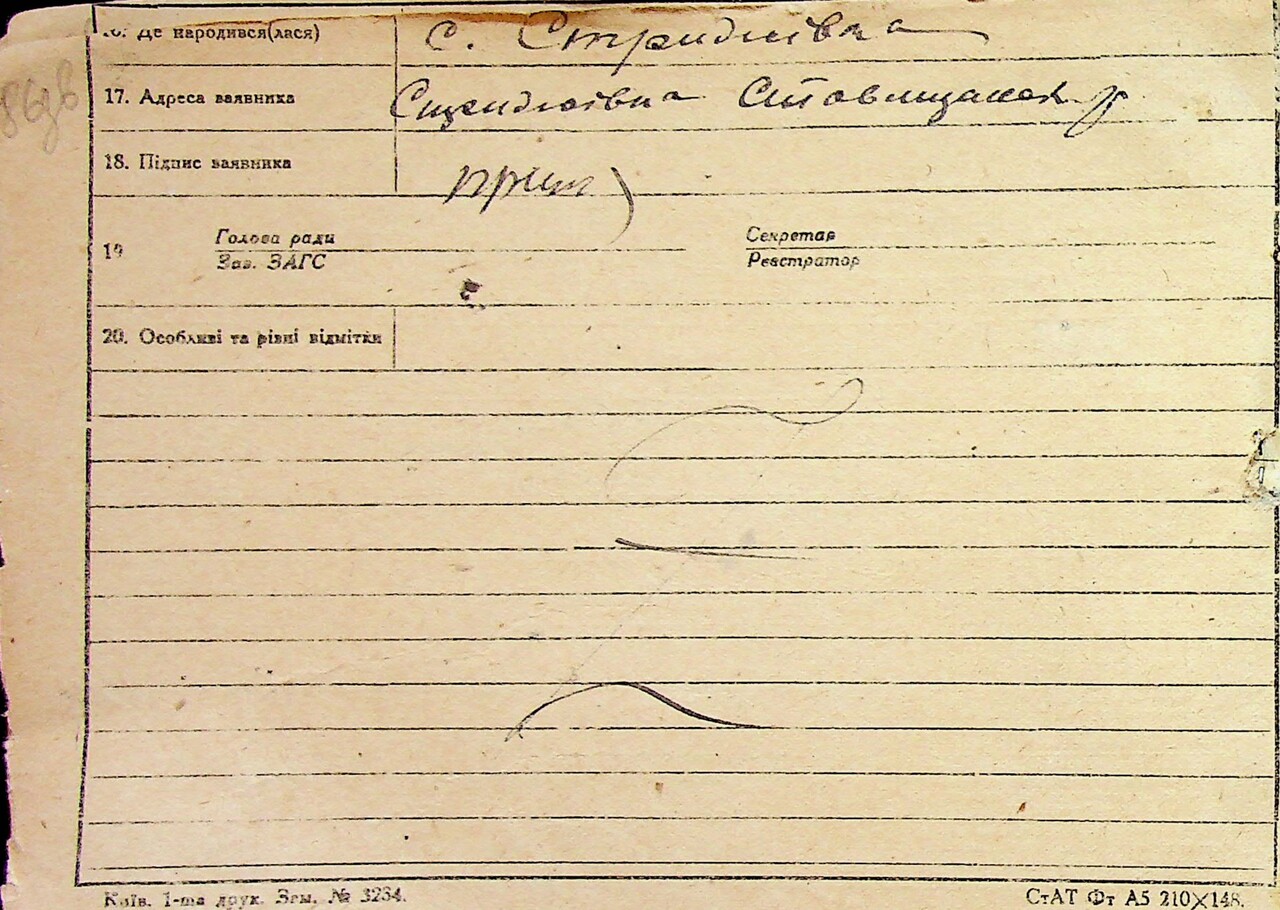 16. Де народився(лася) с. Стрижівка
17. Адреса заявника Стрижівка Ставищанськ р
18. Підпис заявника
19 Голова ради Секретар
Зав. ЗАГС Реєстратор
20. Особливі та різні відмітки
Київ. 1-ша друк. Зам. № 3234. СтАТ Фт А5 210×148.